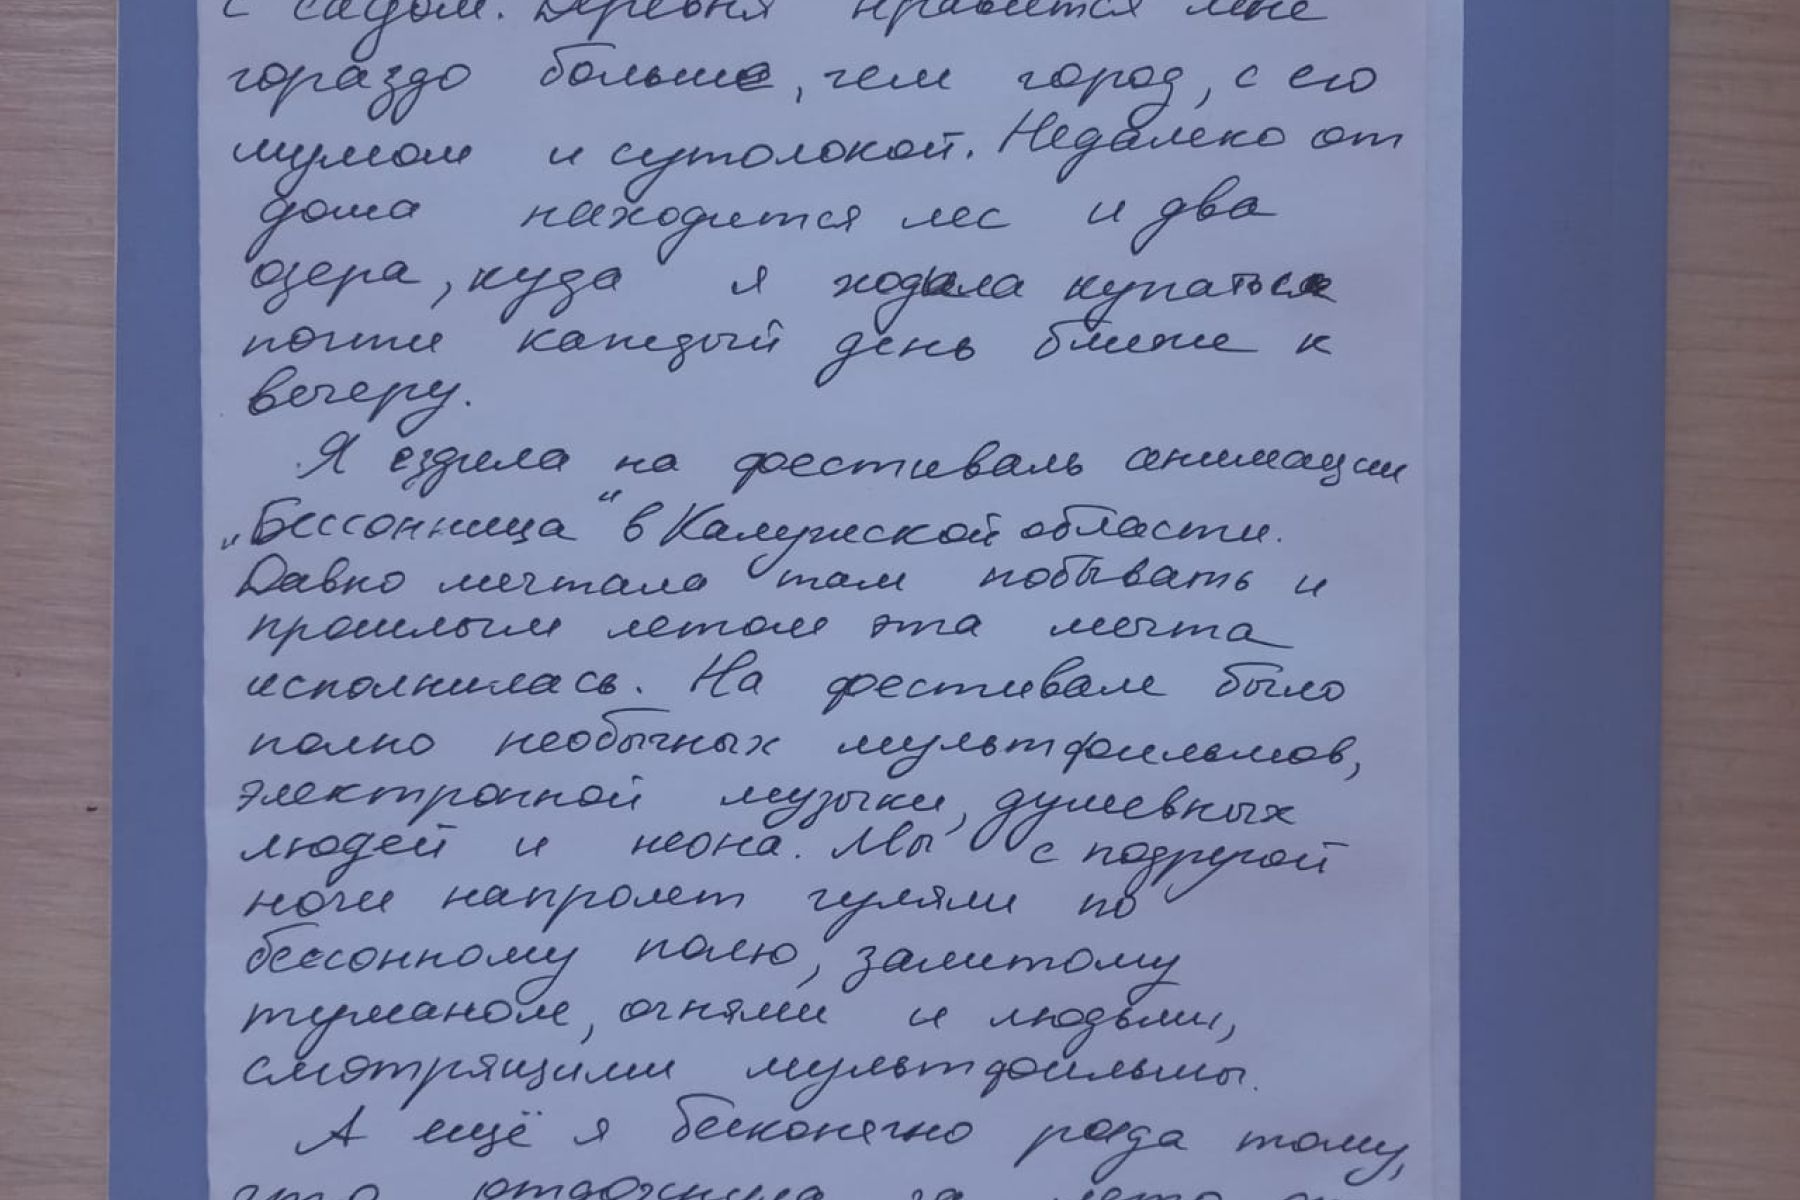 с садом. Деревня нравится мне
гораздо больше, чем город, с его
шумом и сутолокой. Недалеко от
дома находится лес и два
озера, куда я ходила купаться
почти каждый день ближе к
вечеру.
Я ездила на фестиваль анимации
„Бессонница“ в Калужской области.
Давно мечтала там побывать и
прошлым летом эта мечта
исполнилась. На фестивале было
полно необычных мультфильмов,
электронной музыки, душевных
людей и неона. Мы с подругой
ночи напролет гуляли по
бессонному полю, залитому
туманом, огнями и людьми,
смотрящими мультфильмы.
А ещё я бесконечно рада тому,
что отдохнула за лето